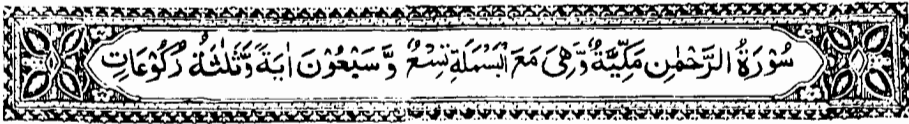 سُوْرَةُ الرَّحْمٰنِ مَكِّيَّةٌ وَّهِيَ مَعَ الْبَسْمَلَةِ تِسْعٌ وَّسَبْعُوْنَ اٰيَةً وَّثَلٰثَةُ رُكُوْعَاتٍ